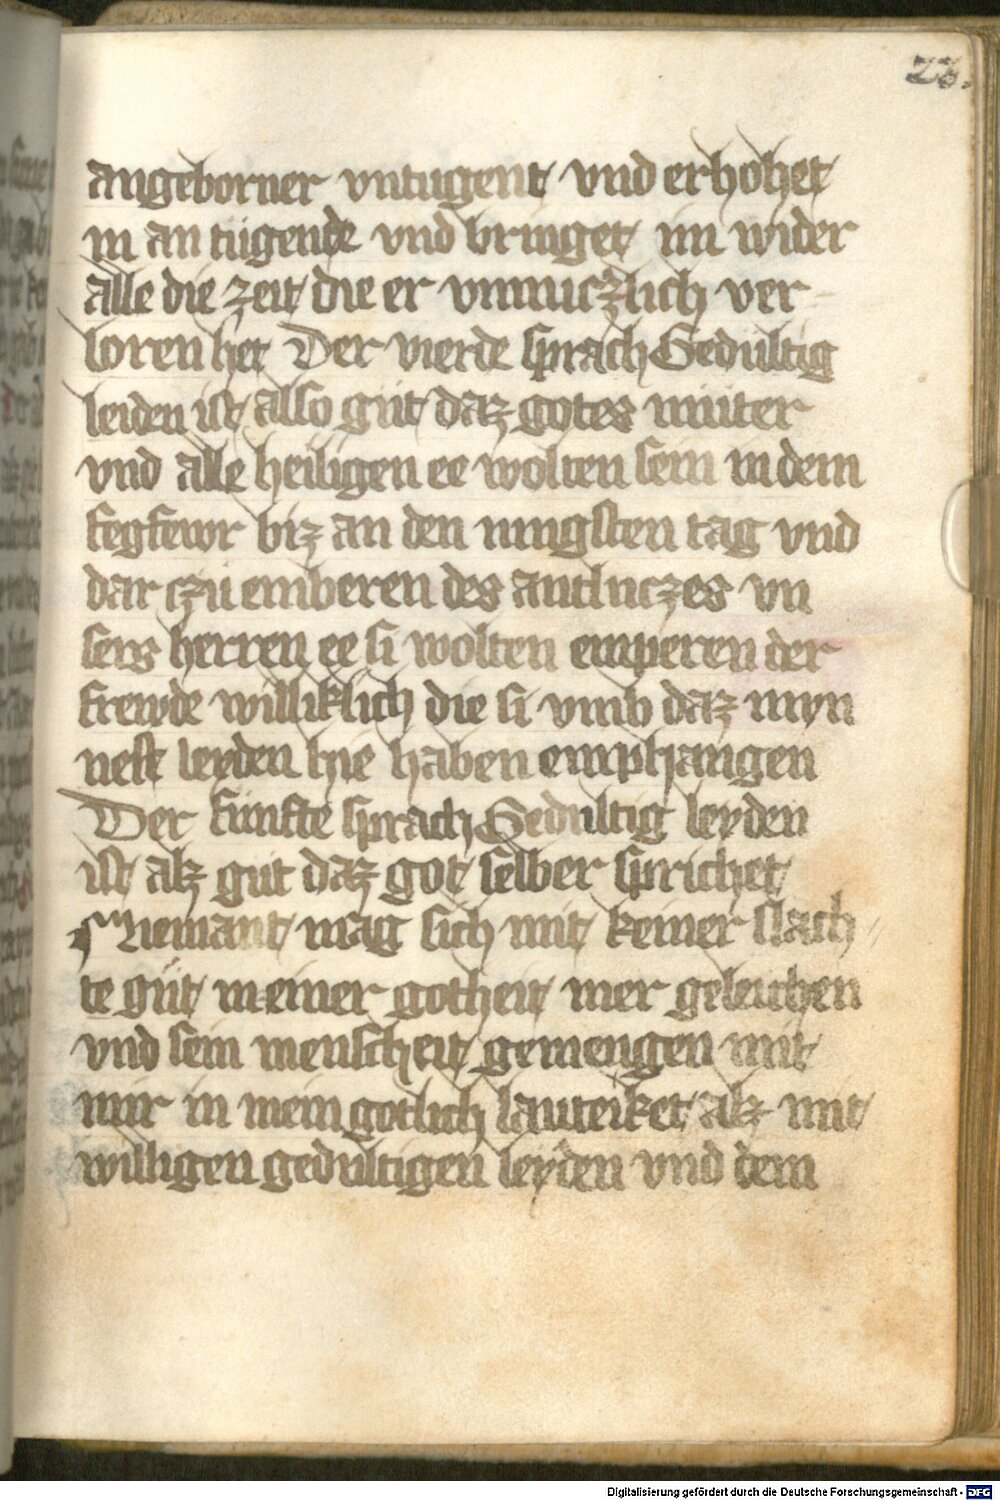 23.
angeborner vntugent vnd erhohet
in an tugende vnd bringet im wider
alle die zeit die er vnnuczlich ver
loren het Der vierde sprach Gedultig
leiden ist also gut daz gotes muter
vnd alle heiligen ee wolten sein in dem
fegfewr biz an den iungsten tag vnd
dar czu emberen des antluczes vn
sers herren ee si wolten emperen der
frewde williklich die si vmb daz myn
nest leyden hie haben emphangen
Der funfte sprach Gedultig leyden
ist alz gut daz got selber sprichet
Niemant mag sich mit keiner slach
te gut meiner gotheit mer geleichen
vnd sein menscheit gemengen mit
mir in mein gotlich lauterket alz mit
willigen gedultigen leyden vnd dem
Digitalisierung gefördert durch die Deutsche Forschungsgemeinschaft - DFG